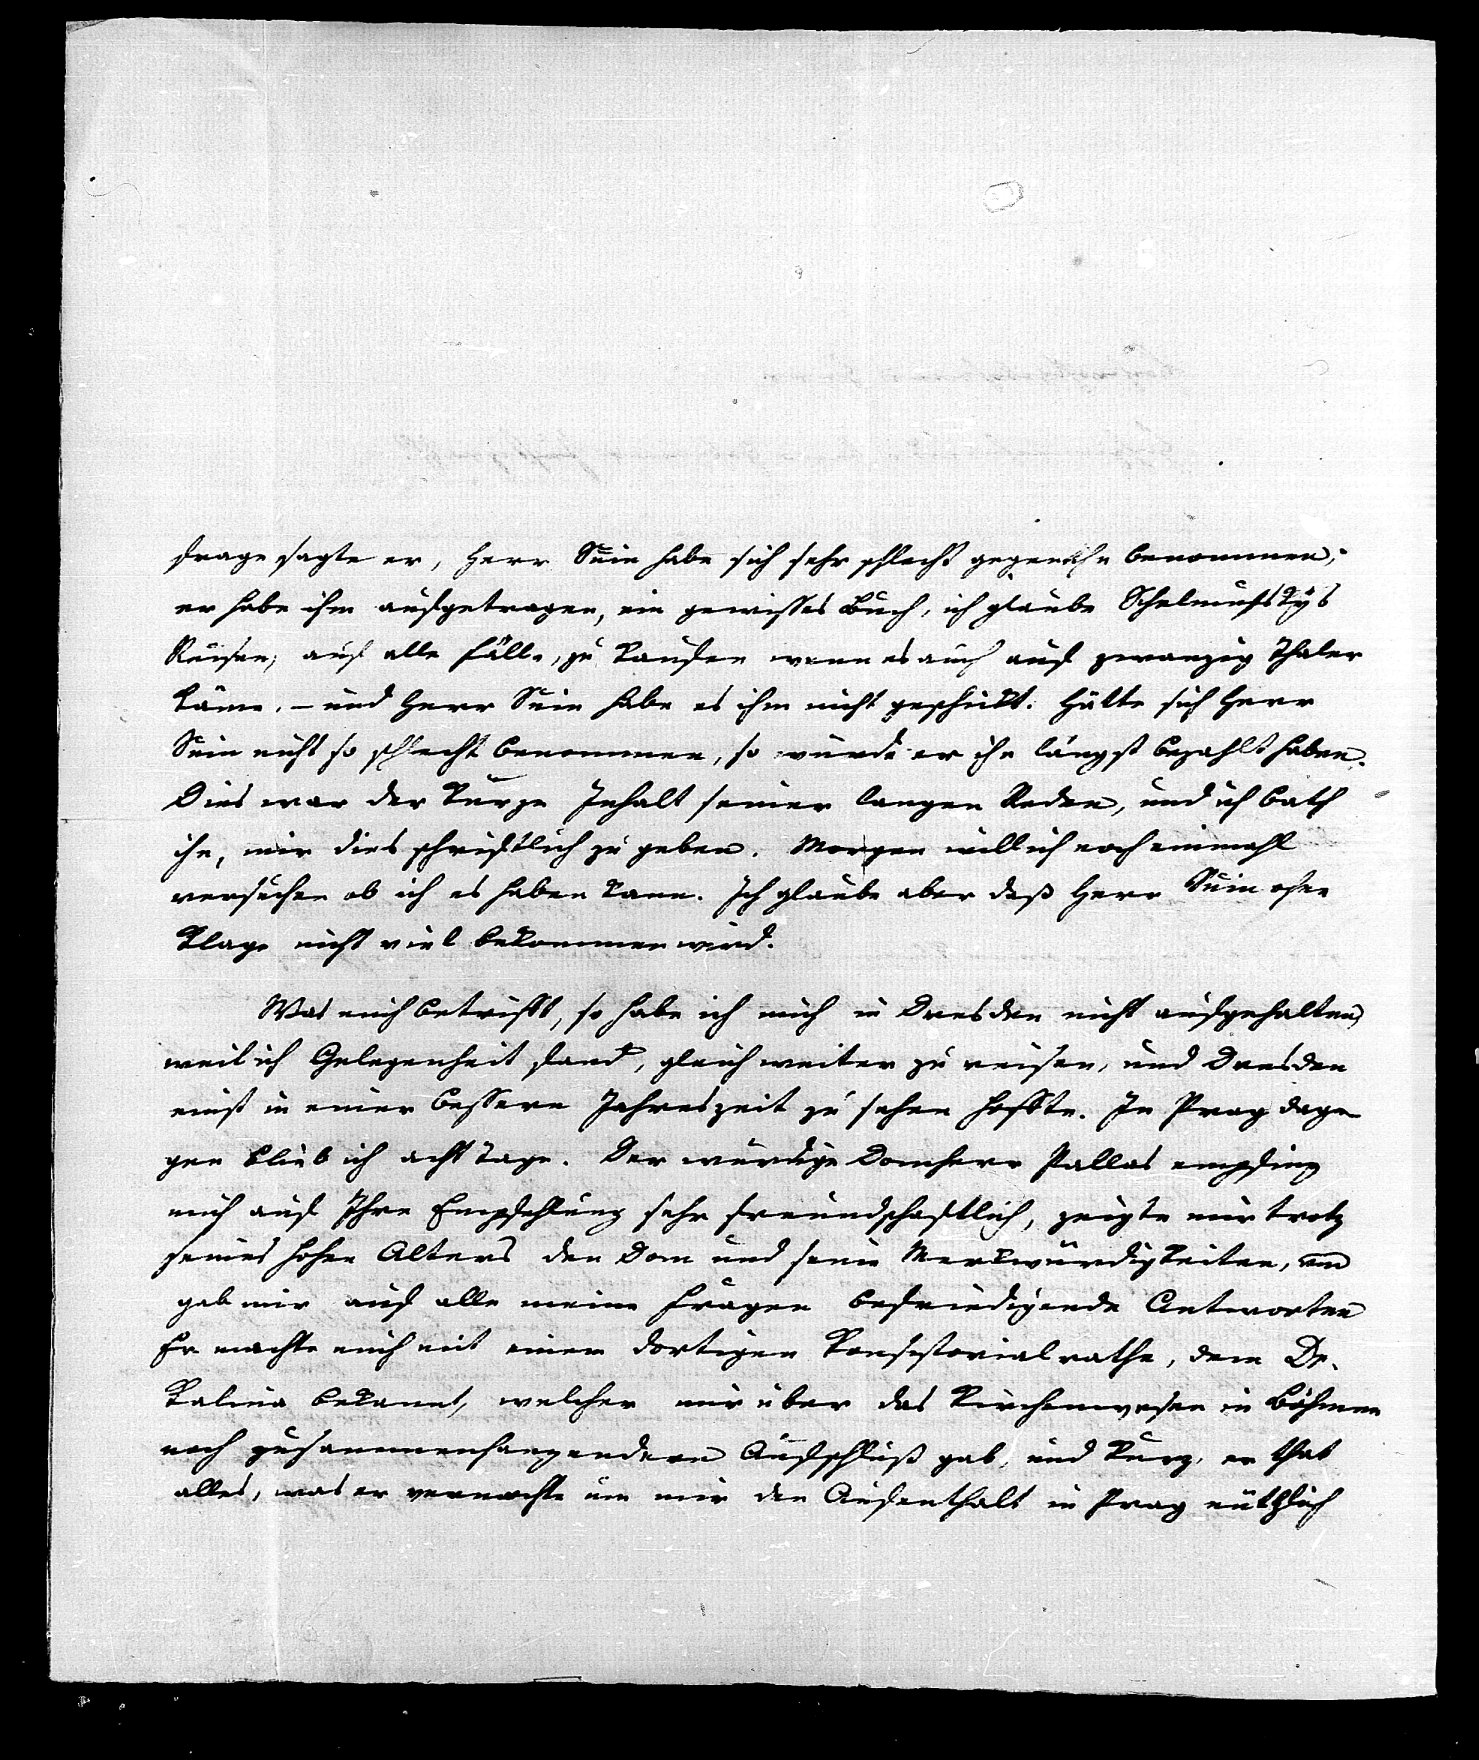 Frage sagte er, Herr Suin habe sich sehr schlecht gegen ihn benommen;
er habe ihm aufgetragen, ein gewisses Buch, ich glaube Schelmufskys
Reisen, auf alle Fälle, zu kaufen wenn es auch auf zwanzig Thaler
käme, – und Herr Suin habe es ihm nicht geschickt. Hätte sich Herr
Suin nicht so schlecht benommen, so würde er ihn längst bezahlt haben.
Dies war der kurze Inhalt seiner langen Reden, und ich bath
ihn, mir dies schriftlich zu geben. Morgen will ich noch einmahl
versuchen ob ich es haben kann. Ich glaube aber daß Herr Suin ohne
Klage nicht viel bekommen wird.
Was mich betrifft, so habe ich mich in Dresden nicht aufgehalten,
weil ich Gelegenheit fand, gleich weiter zu reisen, und Dresden
einst in einer bessern Jahreszeit zu sehen hoffte. In Prag dage
gen blieb ich acht Tage. Der würdige Domherr Pallas empfing
mich auf Ihre Empfehlung sehr freundschaftlich, zeigte mir trotz
seines hohen Alters den Dom und seine Merkwürdigkeiten, und
gab mir auf alle meine Fragen befriedigende Antworten
Er machte mich mit einem dortigen Konsistorialrathe, dem Dr.
Kalina bekannt, welcher mir über das Kirchenwesen in Böhmen
noch zusammenhangendern Aufschluß gab, und kurz, er that
alles, was er vermochte um mir den Aufenthalt in Prag nützlich